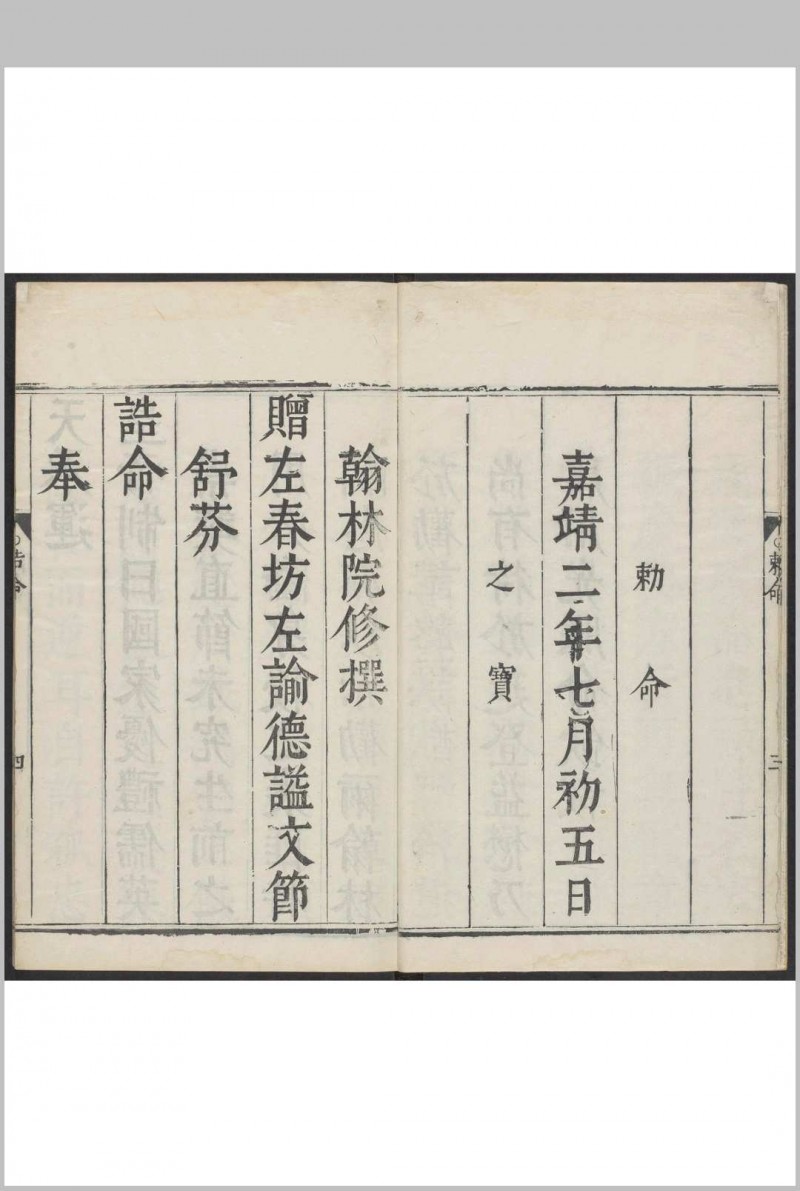 勅命
三
勅命
嘉靖二年七月初五日
之寶
翰林院修撰
贈左春坊左諭德謚文節
舒芬
誥命
奉
誥命
四